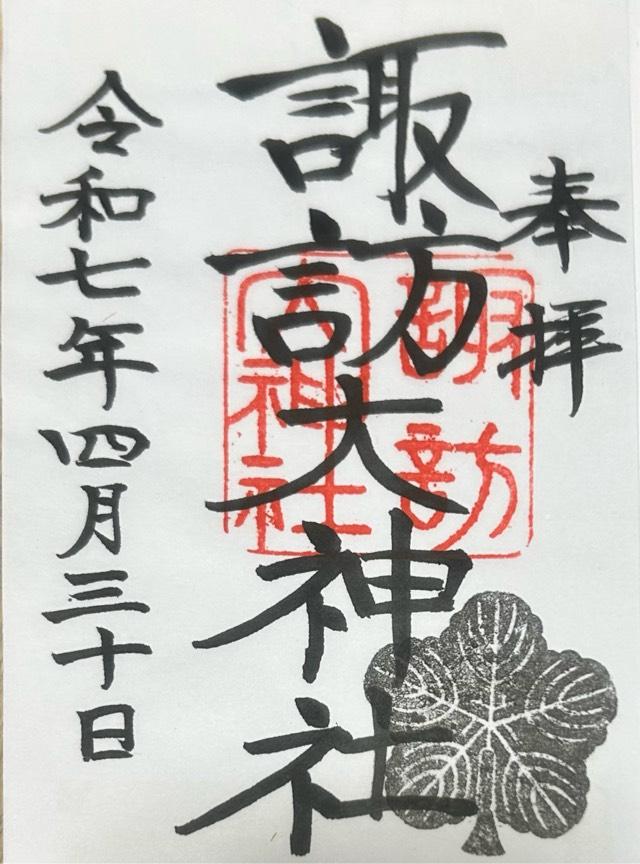 奉拝
諏訪大神社
諏訪
大神社
令和七年四月三十日